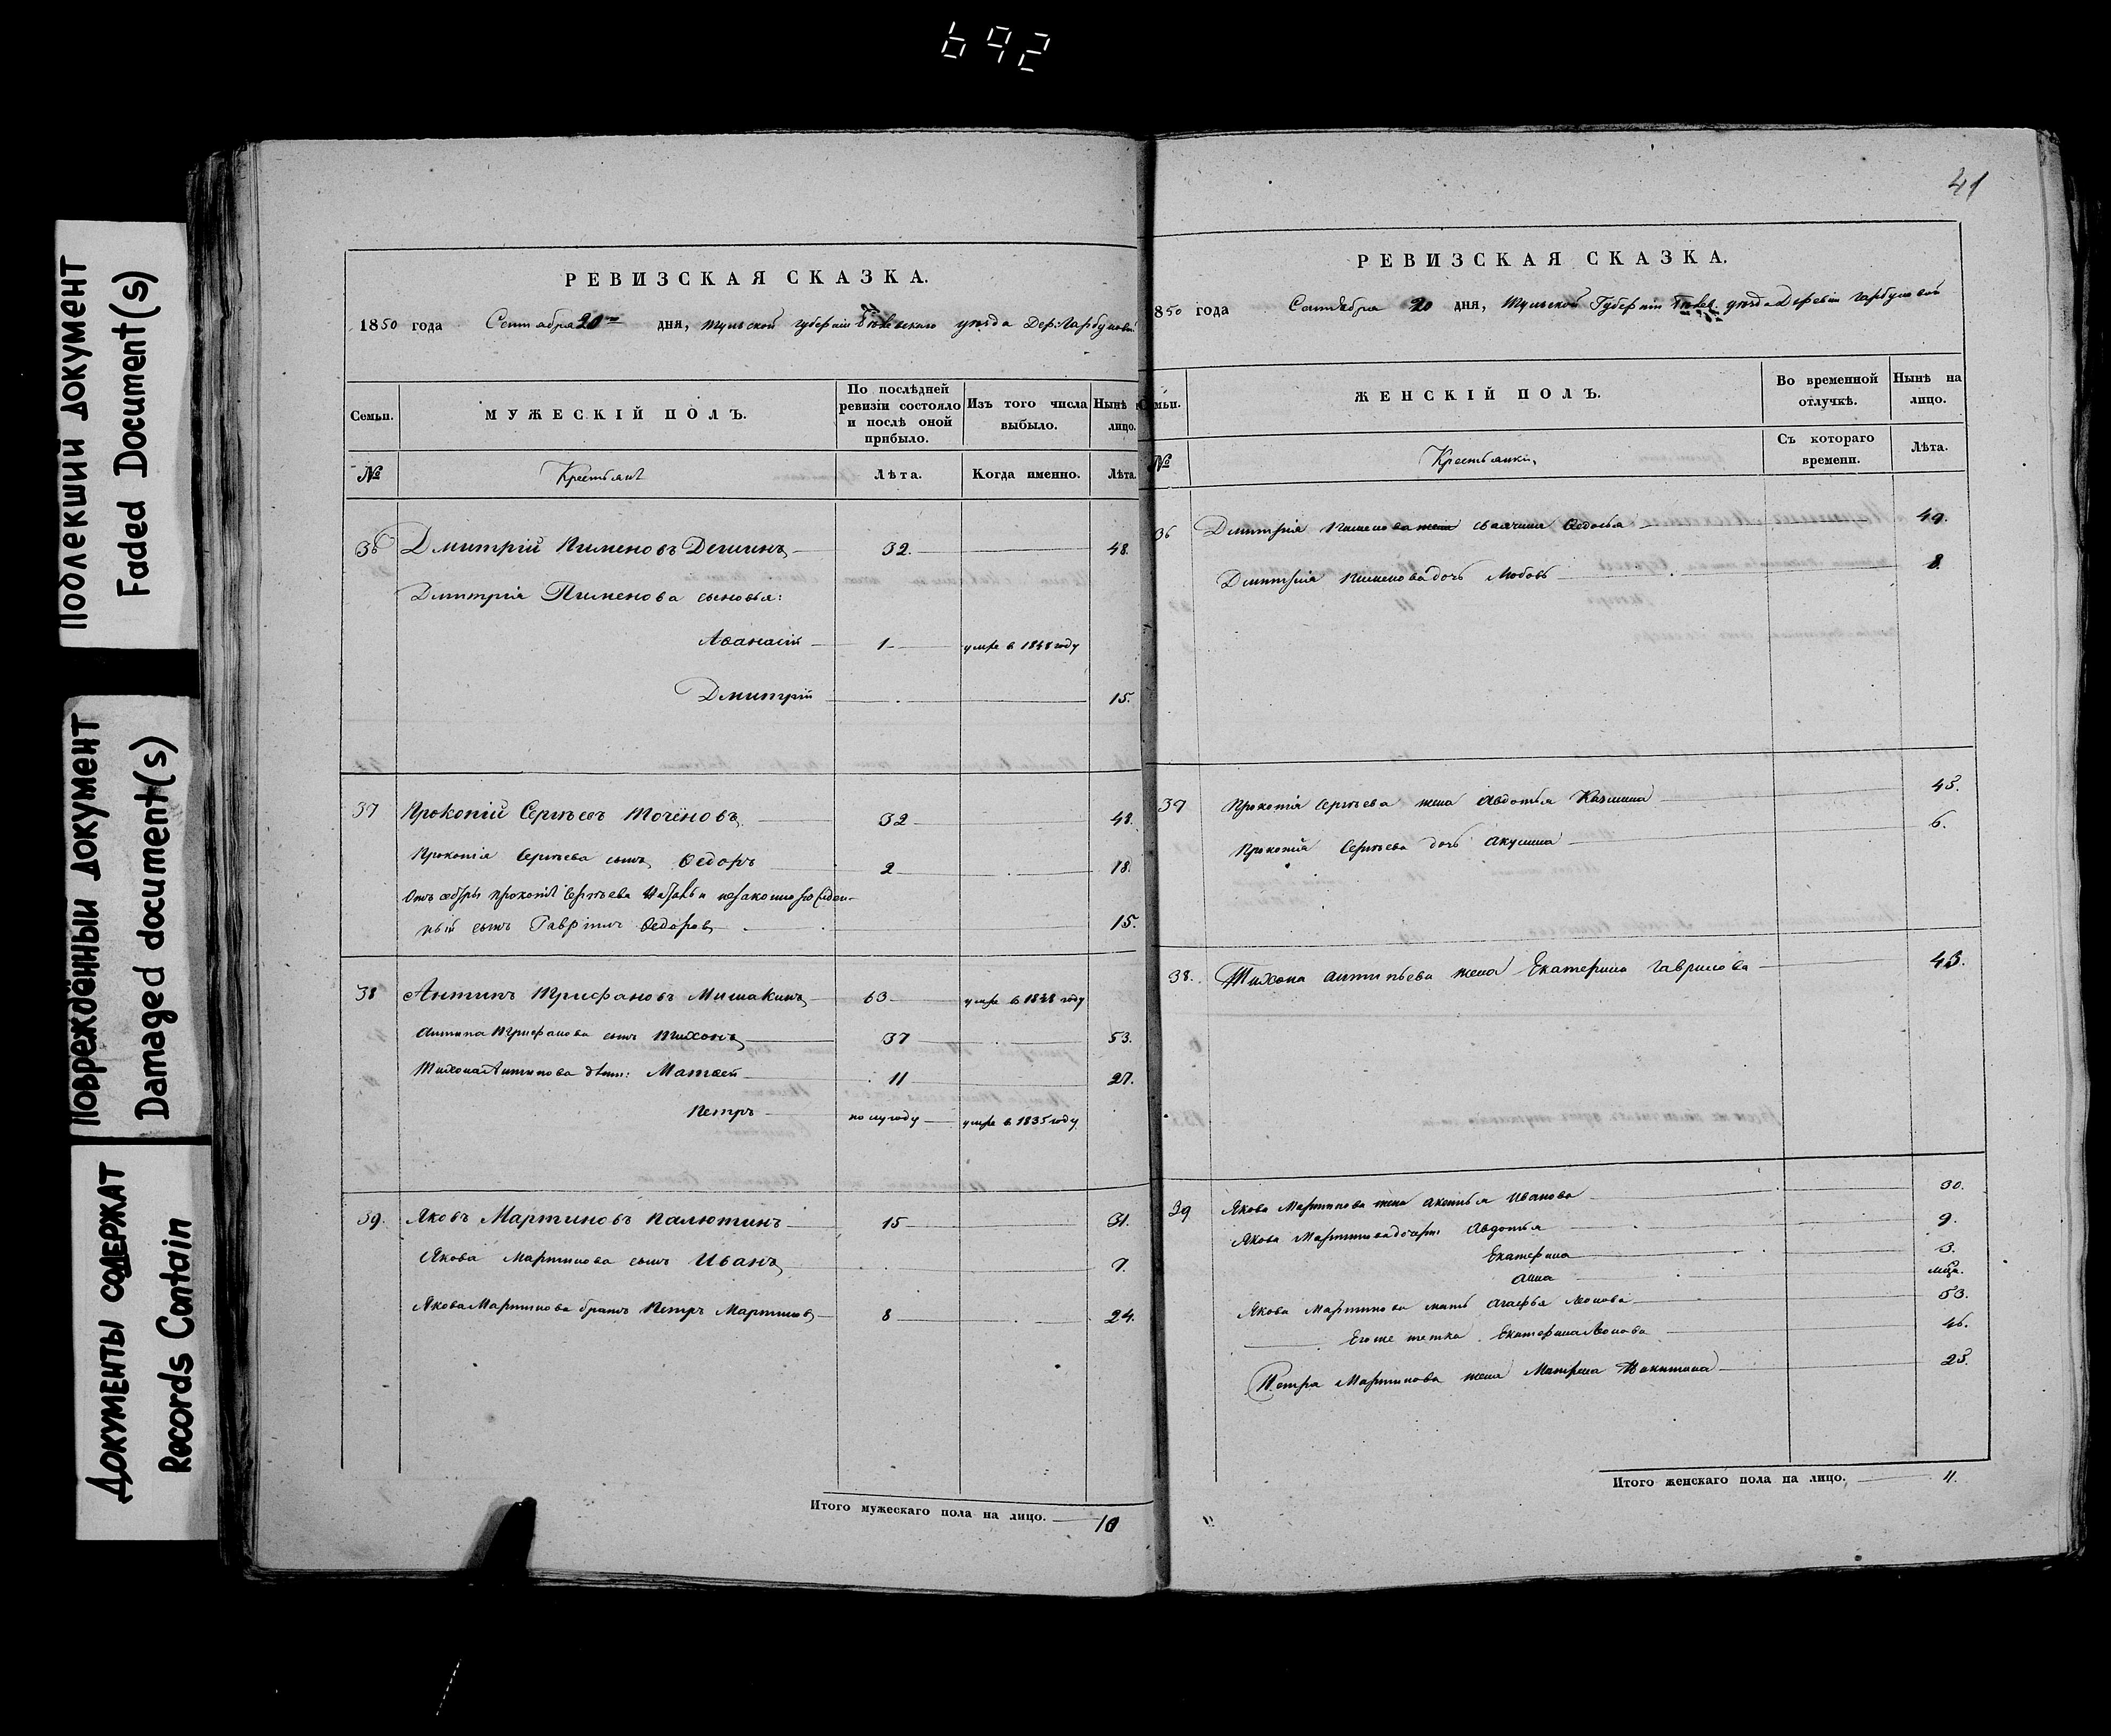 692
Поблекший документ
Faded Document(s)
Повреждённый документ
Damaged document(s)
Документы содержат
Records Contain
РЕВИЗСКАЯ СКАЗКА.
1850 года Сентября 20го дня, Тульской губерніи Бѣлевскаго уѣзда Дер: Гарбуновой
Семьи.
МУЖЕСКІЙ ПОЛЪ.
По послѣдней ревизіи состояло и послѣ оной прибыло.
Изъ того числа выбыло.
Нынѣ на лицо.
№
Крестьянѣ
Лѣта.
Когда именно.
Лѣта.
36 Дмитрій Пименовъ Дешинъ 32. 48.
Дмитрія Пименова сыновья:
Аѳанасій 1 умре в 1848 году
Дмитрій 15.
37 Прокопій Сергѣевъ Точеновъ 32 48.
Прокопія Сергѣева сынъ Ѳедоръ 2 18.
Отъ сестры Прокопія Сергѣева незаконно рожден-
ный сынъ Гаврилъ Ѳедоровъ 15.
38 Антипъ Трифановъ Мишакинъ 63 умре в 1848 году
Антипа Трифанова сынъ Тихонъ 37 53.
Тихона Антипова дѣти: Матвей 11 27.
Петръ полугоду умре в 1835 году
39. Яковъ Мартиновъ Палютинъ 15 31.
Якова Мартинова сынъ Иванъ 7.
Якова Мартинова братъ Петръ Мартиновъ 8 24.
Итого мужескаго пола на лицо. 10
41
РЕВИЗСКАЯ СКАЗКА.
850 года Сентября 20 дня, Тульской Губерніи Бѣлев. уѣзда Деревни Гарбуновой
Семьи.
ЖЕНСКІЙ ПОЛЪ.
Во временной отлучкѣ.
Нынѣ на лицо.
№
Крестьянки,
Съ котораго времени.
Лѣта.
36 Дмитрія Пименова жена Ѳедосья 49.
Дмитрія Пименова дочь Любовь 8.
37 Прокопія Сергѣева жена Авдотья Казмина 45.
Прокопія Сергѣева дочь Акулина 6.
38. Тихона Антипьева жена Екатерина Гаврилова 43.
39 Якова Мартинова жена Аксинья Иванова 30.
Якова Мартинова дочери: Авдотья 9.
Екатерина 3.
Анна мца.
Якова Мартинова мать Агафья Леонова 53.
Его же тетка Екатерина Леонова 46.
Петра Мартинова жена Матрена Никитина 25.
Итого женскаго пола на лицо. 11.